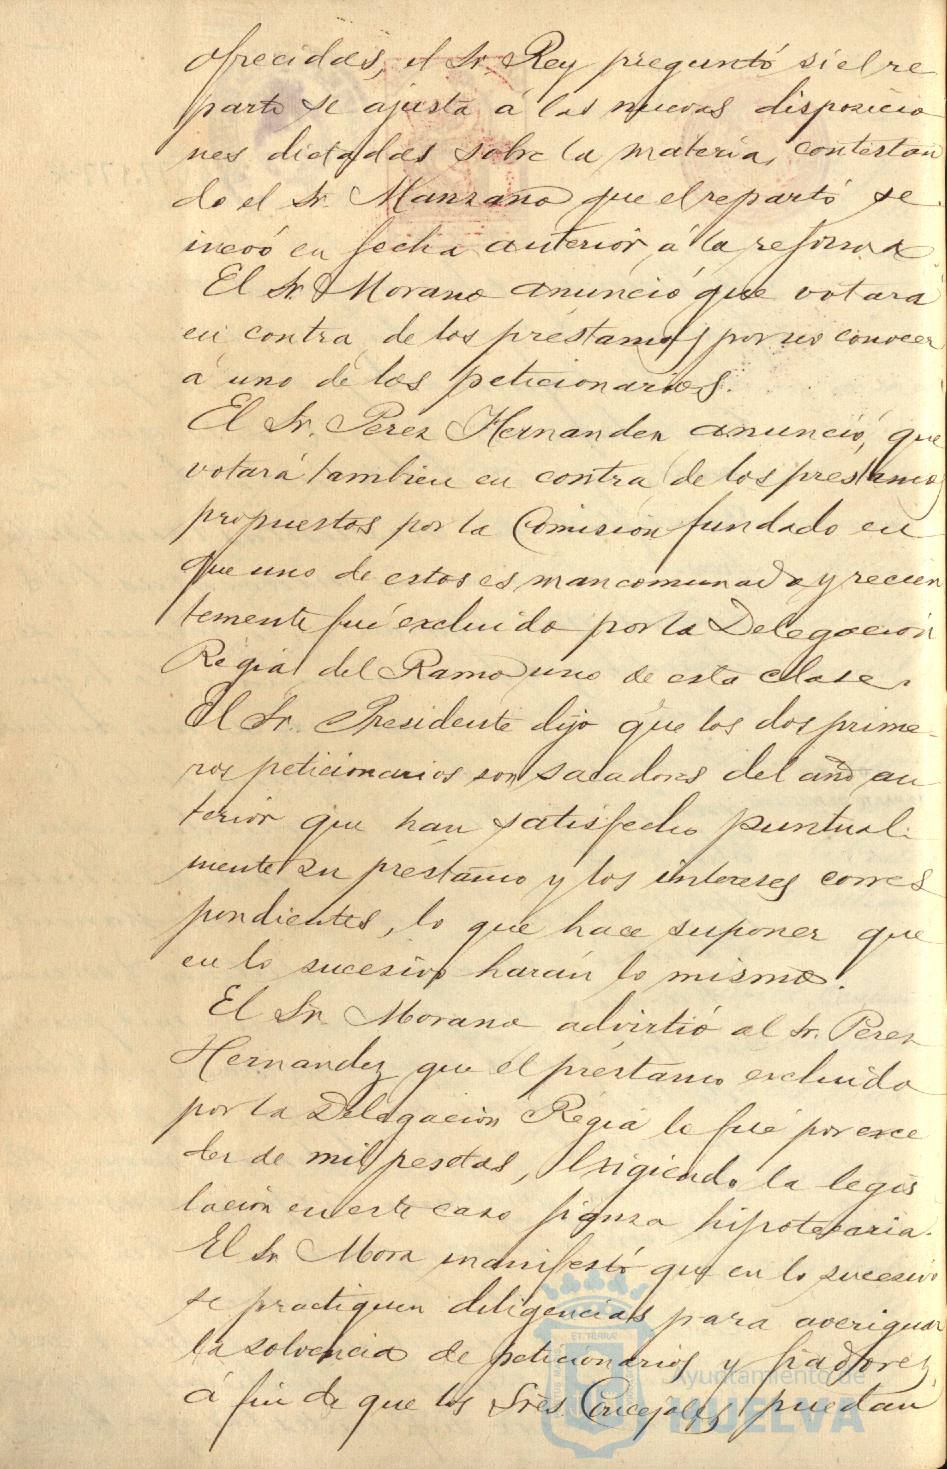 ofrecidas, el Sr. Rey preguntó si el re
parto se ajusta á las nuevas disposicio
nes dictadas sobre la materia, contestan
do el Sr. Manzano que el repartó se
incoó en fecha anterior á la reforma
El Sr. Morano anunció que votará
en contra de los préstamos por no conocer
á uno de los peticionarios.
El Sr. Perez Hernandez anunció, que
votará tambien en contra de los prestamos
propuestos por la Comisión fundado en
que uno de estos es mancomunado y recien
temente fué excluido por la Delegación
Regia del Ramo uno de esta clase.
El Sr. Presidente dijo que los dos prime-
ros peticionarios son sacadores del año an
terior que han satisfecho puntual-
mente su prestamo y los intereses corres
pondientes, lo que hace suponer que
en lo sucesivo harán lo mismo.
El Sr. Morano advirtió al Sr. Perez
Hernandez que el préstamo excluido
por la Delegación Regia lo fué por exce
der de mil pesetas, exigiendo la legis
lación en este caso fianza hipotecaria.
El Sr. Mora manifestó que en lo sucesivo
se practiquen diligencias para averiguar
la solvencia de peticionarios y fiadores,
á fin de que los Sres Concejales puedan
Ayuntamiento de
HUELVA